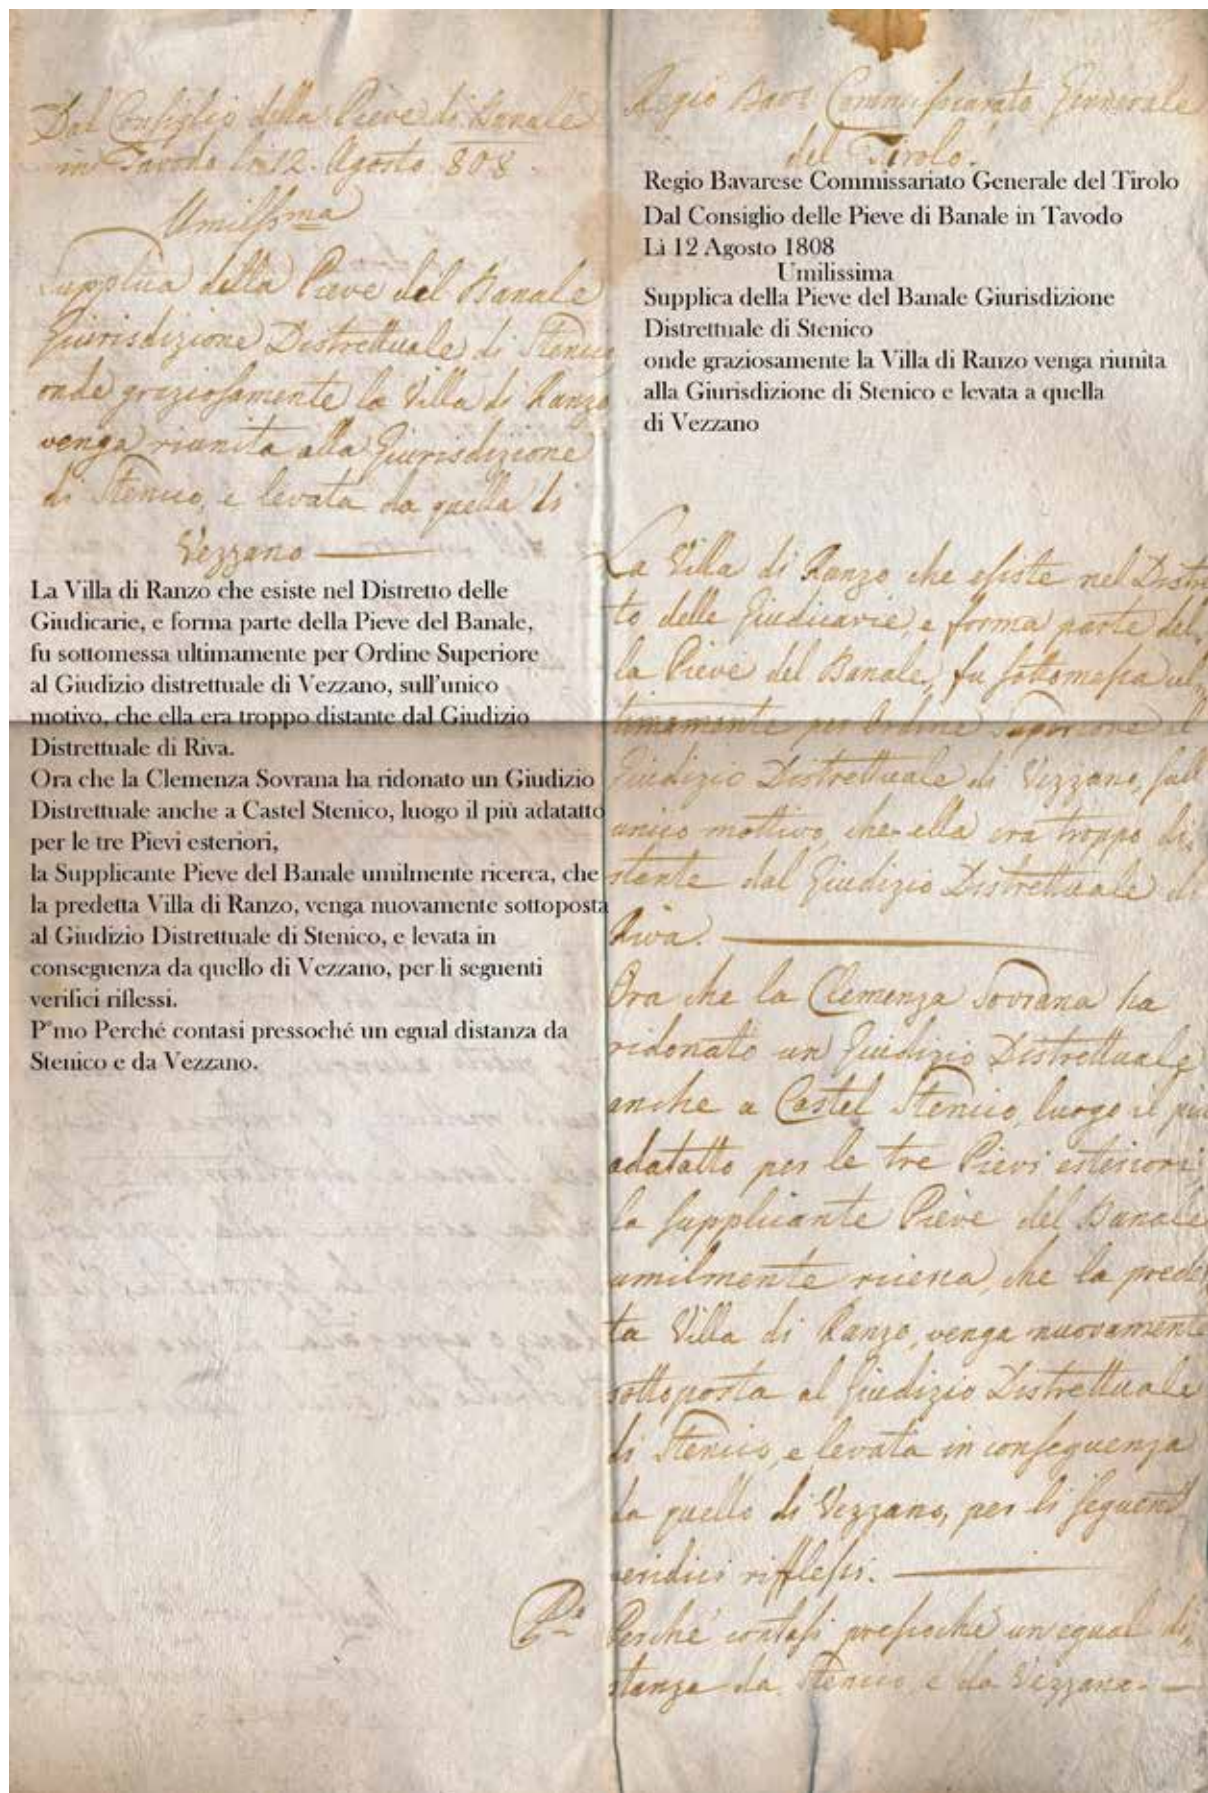 Dal Consiglio della Pieve di Banale
in Tavodo li 12. Agosto 808.
Umilssma
Supplica della Pieve del Banale
Giurisdizione Distrettuale di Stenico
onde graziosamente la Villa di Ranzo
venga riunita alla Giurisdizione
di Stenico, e levata da quella di
Vezzano
La Villa di Ranzo che esiste nel Distretto delle
Giudicarie, e forma parte della Pieve del Banale,
fu sottomessa ultimamente per Ordine Superiore
al Giudizio distrettuale di Vezzano, sull'unico
motivo, che ella era troppo distante dal Giudizio
Distrettuale di Riva.
Ora che la Clemenza Sovrana ha ridonato un Giudizio
Distrettuale anche a Castel Stenico, luogo il più adatatto
per le tre Pievi esteriori,
la Supplicante Pieve del Banale umilmente ricerca, che
la predetta Villa di Ranzo, venga nuovamente sottoposta
al Giudizio Distrettuale di Stenico, e levata in
conseguenza da quello di Vezzano, per li seguenti
verifici riflessi.
P°mo Perché contasi pressoché un egual distanza da
Stenico e da Vezzano.
Regio Bavo Commissariato Generale
del Tirolo.
Regio Bavarese Commissariato Generale del Tirolo
Dal Consiglio delle Pieve di Banale in Tavodo
Lì 12 Agosto 1808
Umilissima
Supplica della Pieve del Banale Giurisdizione
Distrettuale di Stenico
onde graziosamente la Villa di Ranzo venga riunita
alla Giurisdizione di Stenico e levata a quella
di Vezzano
La Villa di Ranzo che esiste nel Distre
to delle Giudicarie, e forma parte del,
la Pieve del Banale, fu sottomessa ul,
timamente per Ordine Superiore al
Giudizio Distrettuale di Vezzano, sull
unico mottivo, che ella era troppo di,
stante dal Giudizio Distrettuale di
Riva.
Ora che la Clemenza Sovrana ha
ridonato un Giudizio Distrettuale
anche a Castel Stenico, luogo il più
adatatto per le tre Pievi esteriori,
la supplicante Pieve del Banale
umilmente ricerca, che la predet,
ta Villa di Ranzo, venga nuovamente
sottoposta al Giudizio Distrettuale
di Stenico, e levata in conseguenza
da quello di Vezzano, per li seguenti
veridici rifflessi.
Po Perché contasi pressoché un egual di,
stanza da Stenico, e da Vezzano.